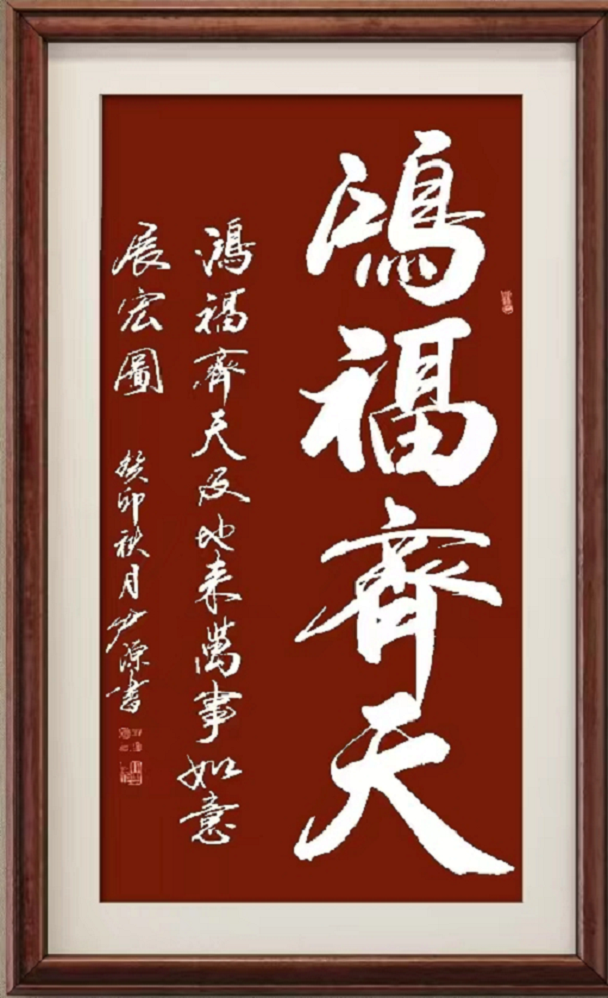 鴻福齊天
鴻福齊天及地来萬事如意
展宏圖
癸卯秋月尹源書